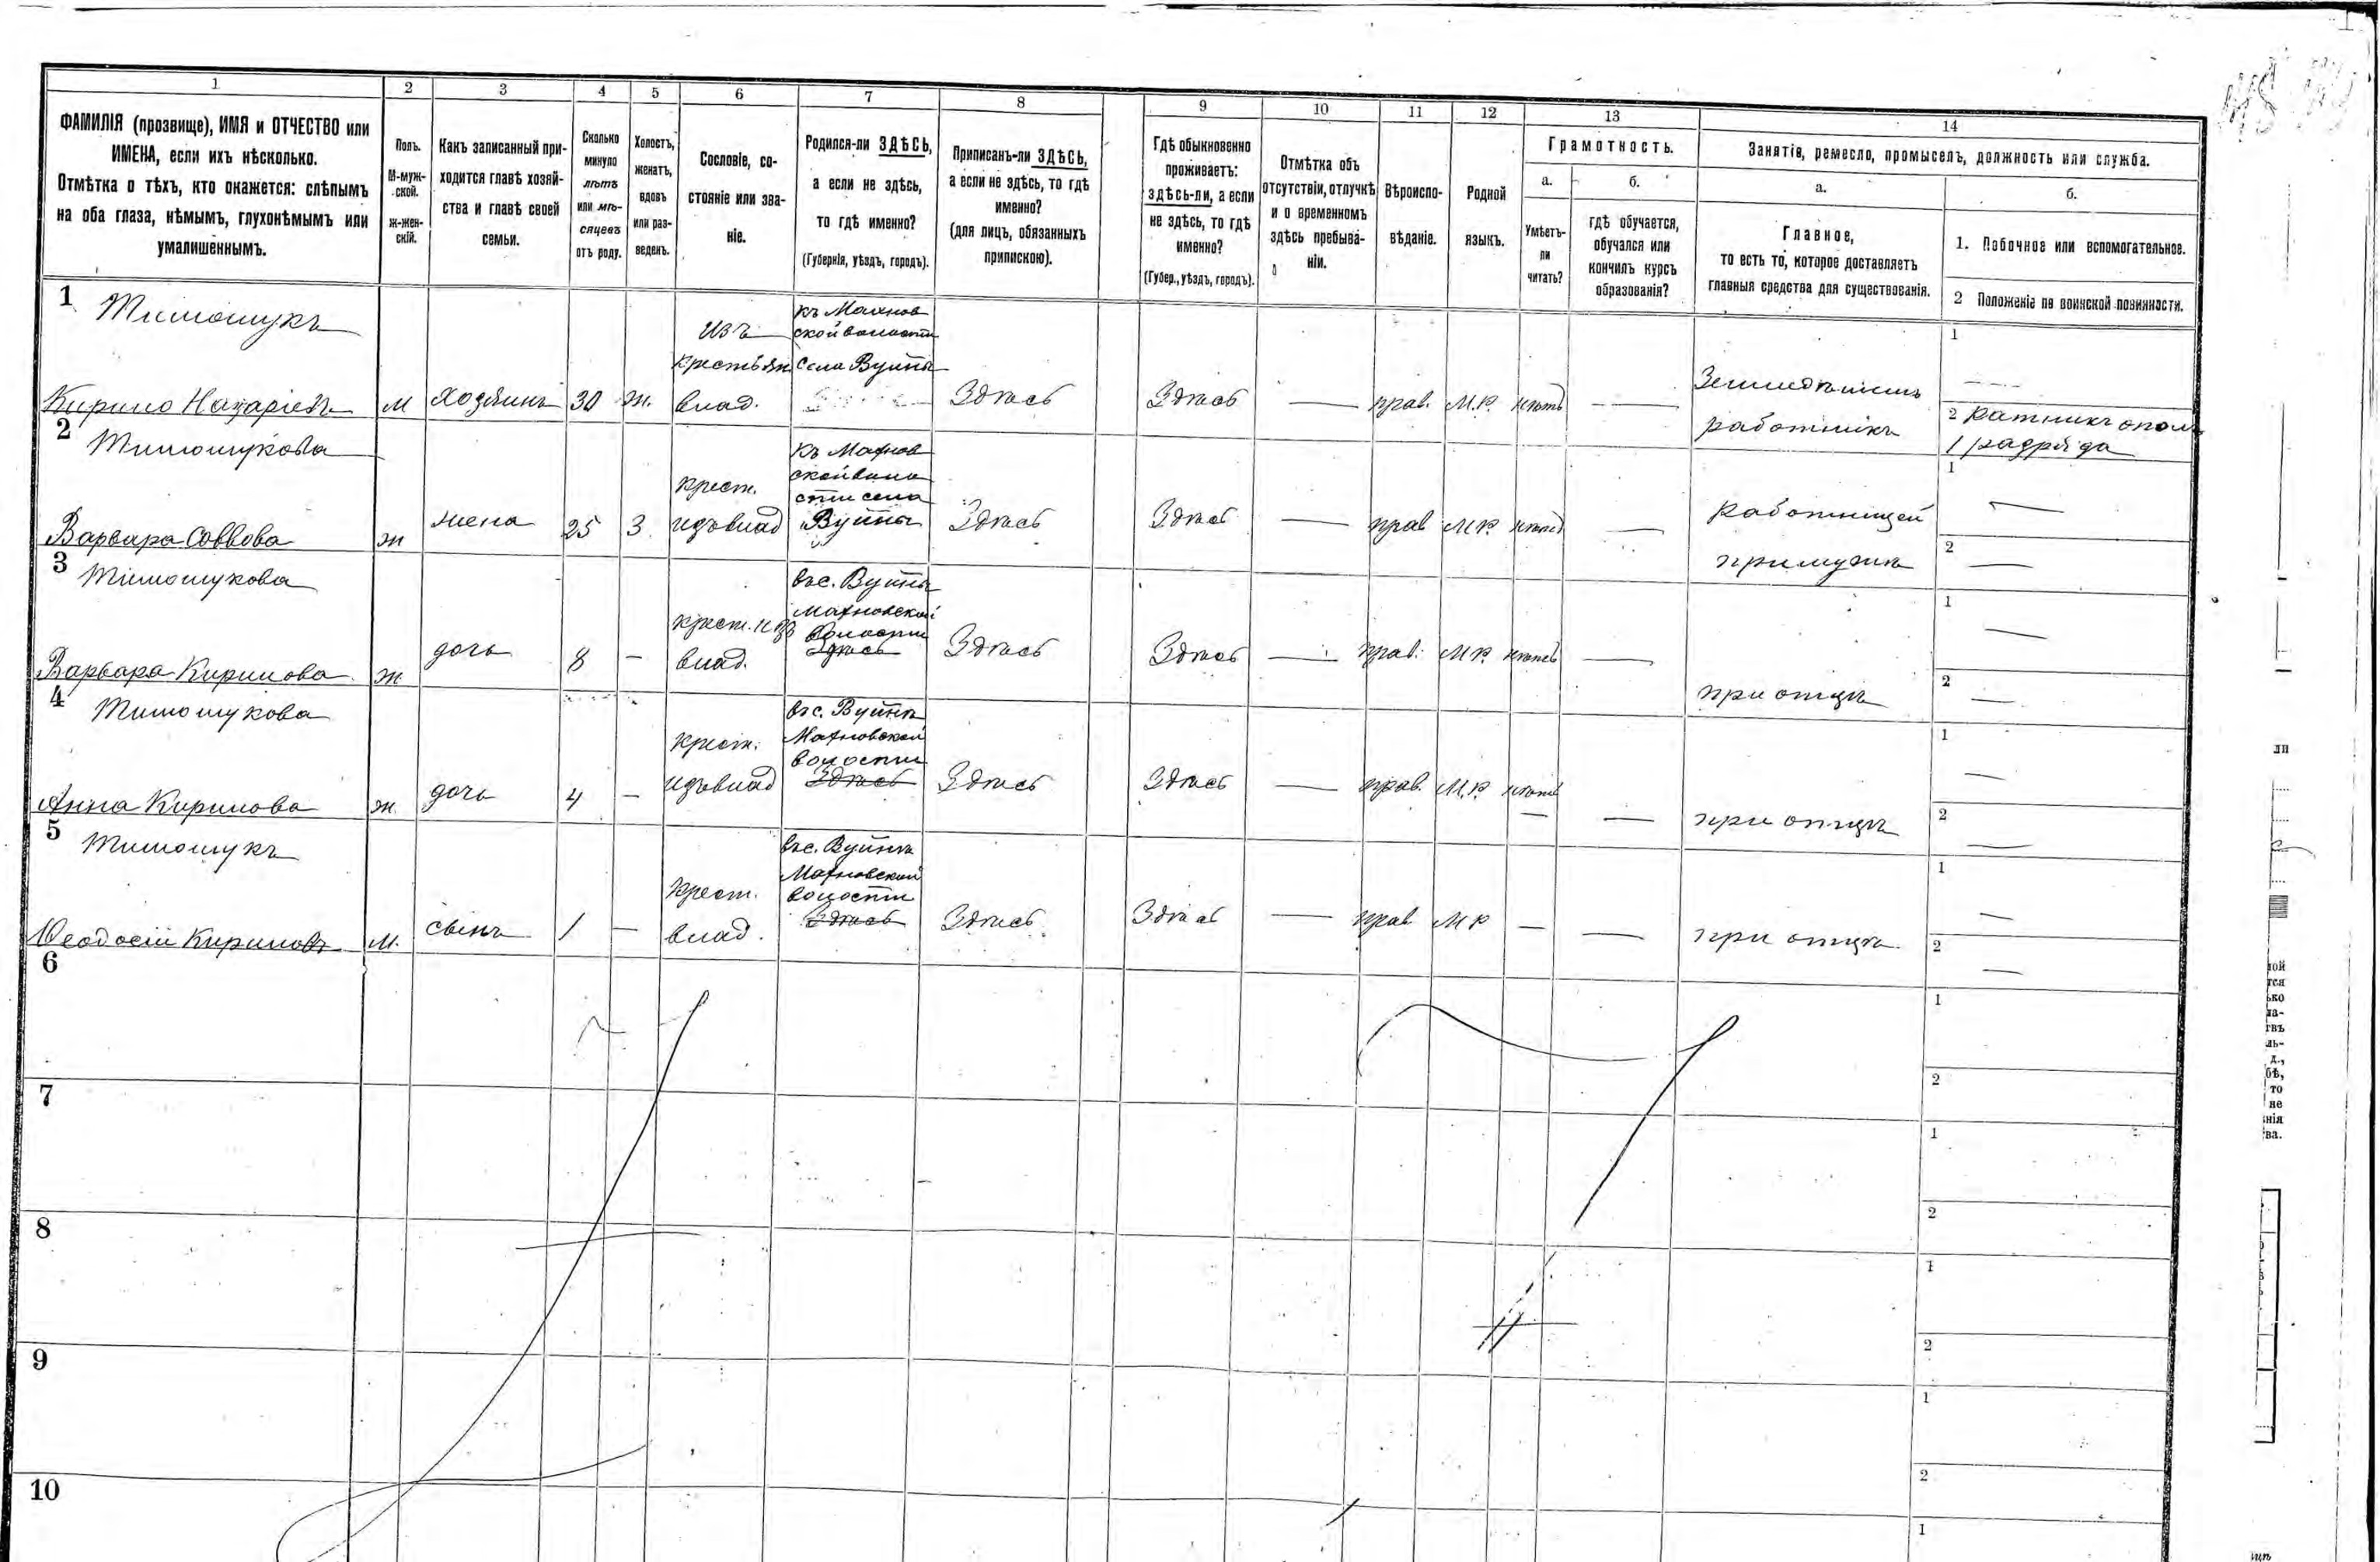 1
2
3
4
5
6
7
8
9
10
11
12
13
14
ФАМИЛІЯ (прозвище), ИМЯ и ОТЧЕСТВО или
ИМЕНА, если ихъ нѣсколько.
Отмѣтка о тѣхъ, кто окажется: слѣпымъ
на оба глаза, нѣмымъ, глухонѣмымъ или
умалишеннымъ.
Полъ.
М-муж-
ской.
Ж-жен-
скій.
Какъ записанный при-
ходится главѣ хозяй-
ства и главѣ своей
семьи.
Сколько
минуло
лѣтъ
или мѣ-
сяцевъ
отъ роду.
Холостъ,
женатъ,
вдовъ
или раз-
веденъ.
Сословіе, со-
стояніе или зва-
ніе.
Родился-ли ЗДѢСЬ,
а если не здѣсь,
то гдѣ именно?
(Губернія, уѣздъ, городъ).
Приписанъ-ли ЗДѢСЬ,
а если не здѣсь, то гдѣ
именно?
(для лицъ, обязанныхъ
припискою).
Гдѣ обыкновенно
проживаетъ:
здѣсь-ли, а если
не здѣсь, то гдѣ
именно?
(Губер., уѣздъ, городъ).
Отмѣтка объ
отсутствіи, отлучкѣ
и о временномъ
здѣсь пребыва-
ніи.
Вѣроиспо-
вѣданіе.
Родной
языкъ.
Грамотность.
а.
Умѣетъ-
ли
читать?
б.
гдѣ обучается,
обучался или
кончилъ курсъ
образованія?
Занятія, ремесло, промыселъ, должность или служба.
а.
Главное,
то есть то, которое доставляетъ
главныя средства для существованія.
б.
1. Побочное или вспомогательное.
2 Положеніе по воинской повинности.
1 Тимощукъ
Кирило Назаріевъ
М
Хозяинъ
30
Ж.
Изъ
крестьян
влад.
Села Вуйны
Здѣсь
Здѣсь
—
прав.
М.Р.
нѣтъ
—
Земледѣлецъ
работникъ
1
—
2 ратникъ опол.
1 разряда
2 Тимощукова
Варвара Саввова
ж
жена
25
З.
крест.
изъ влад
къ Махнов
ской воло
сти села
Вуйны
Здѣсь
Здѣсь
—
прав
М.Р.
нѣтъ
—
работницей
при мужѣ
1
—
2
—
3 Тимощукова
Варвара Кирилова
ж
дочь
8
—
крест. изъ
влад.
въ с. Вуйнѣ
Махновской
волости
Здѣсь
Здѣсь
Здѣсь
—
прав.
М.Р.
нѣтъ
—
при отцѣ
1
—
2
—
4 Тимощукова
Анна Кирилова
ж.
дочь
4
—
крест.
изъ влад
въ с. Вуйнѣ
Махновской
волости
Здѣсь
Здѣсь
Здѣсь
—
прав.
М.Р.
нѣтъ
—
—
при отцѣ
1
—
2
—
5 Тимощукъ
Ѳеодосій Кириловъ
М.
сынъ
1
—
крест.
влад.
въ с. Вуйнѣ
Махновской
волости
Здѣсь
Здѣсь
Здѣсь
—
прав
М Р
—
—
при отцѣ
1
—
2
—
6
1
2
7
1
2
8
1
2
9
1
2
10
1
ли
той
тся
ько
на-
твъ
ль-
д.,
бѣ,
то
не
нія
ва.